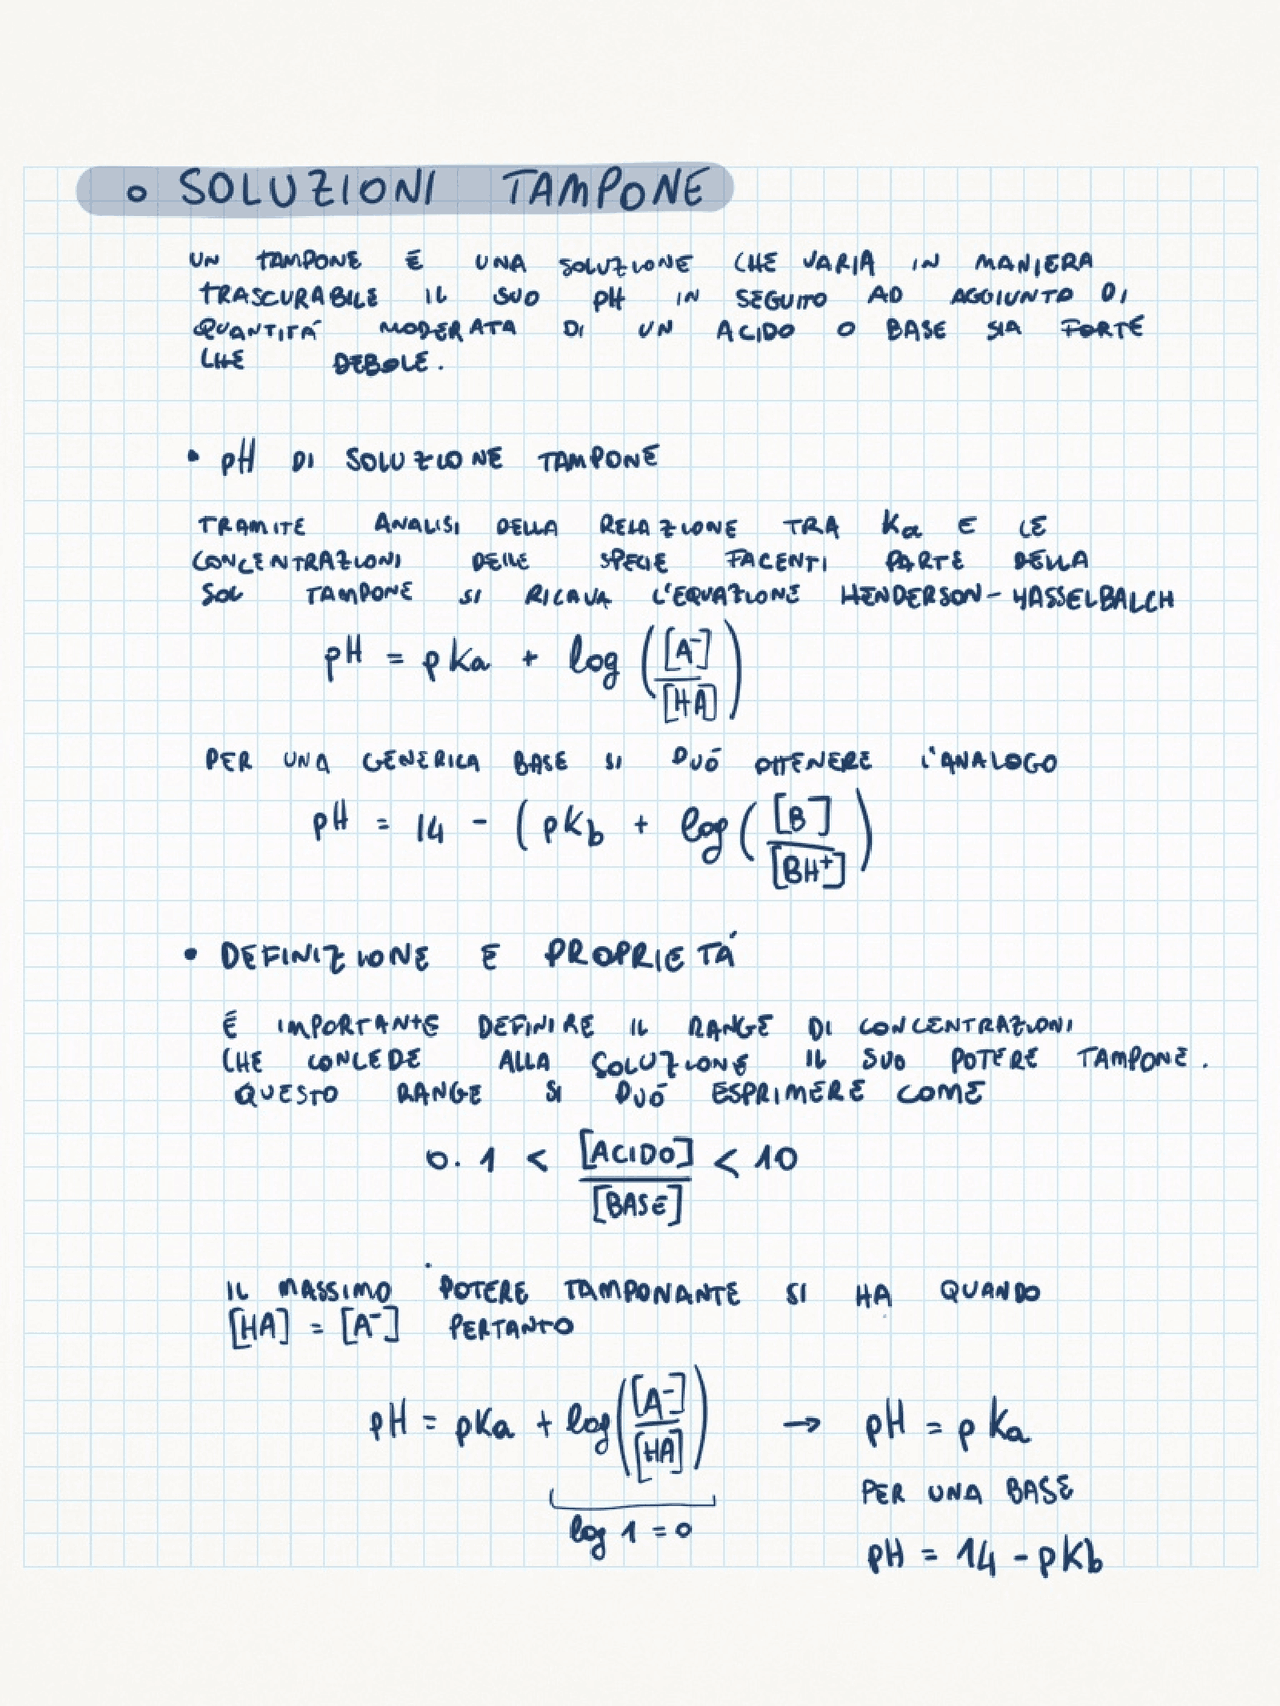 • SOLUZIONI TAMPONE
UN TAMPONE É UNA SOLUZIONE CHE VARIA IN MANIERA
TRASCURABILE IL SUO PH IN SEGUITO AD AGGIUNTO DI
QUANTITÁ MODERATA DI UN ACIDO O BASE SIA FORTE
CHE DEBOLE.
• pH DI SOLUZIONE TAMPONE
TRAMITE ANALISI DELLA RELAZIONE TRA Ka E LE
CONCENTRAZIONI DELLE SPECIE FACENTI PARTE DELLA
SOL TAMPONE SI RICAVA L'EQUAZIONE HENDERSON-HASSELBALCH
pH = pKa + log ([A⁻]/[HA])
PER UNA GENERICA BASE SI PUÓ OTTENERE L'ANALOGO
pH = 14 - (pKb + log([B]/[BH⁺])
• DEFINIZIONE E PROPRIETÁ
É IMPORTANTE DEFINIRE IL RANGE DI CONCENTRAZIONI
CHE CONCEDE ALLA SOLUZIONE IL SUO POTERE TAMPONE.
QUESTO RANGE SI PUÓ ESPRIMERE COME
0.1 < [ACIDO]/[BASE] < 10
IL MASSIMO POTERE TAMPONANTE SI HA QUANDO
[HA] = [A⁻] PERTANTO
pH = pKa + log([A⁻]/[HA]) → pH = pKa
PER UNA BASE
log 1 = 0
pH = 14 - pKb